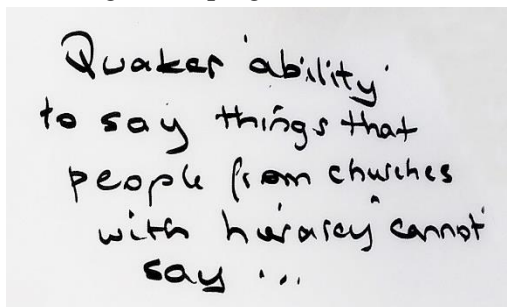 Quaker 'ability'
to say things that
people from churches
with hierarcy cannot
say ...